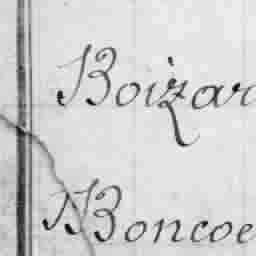 Boizar
Boncoe